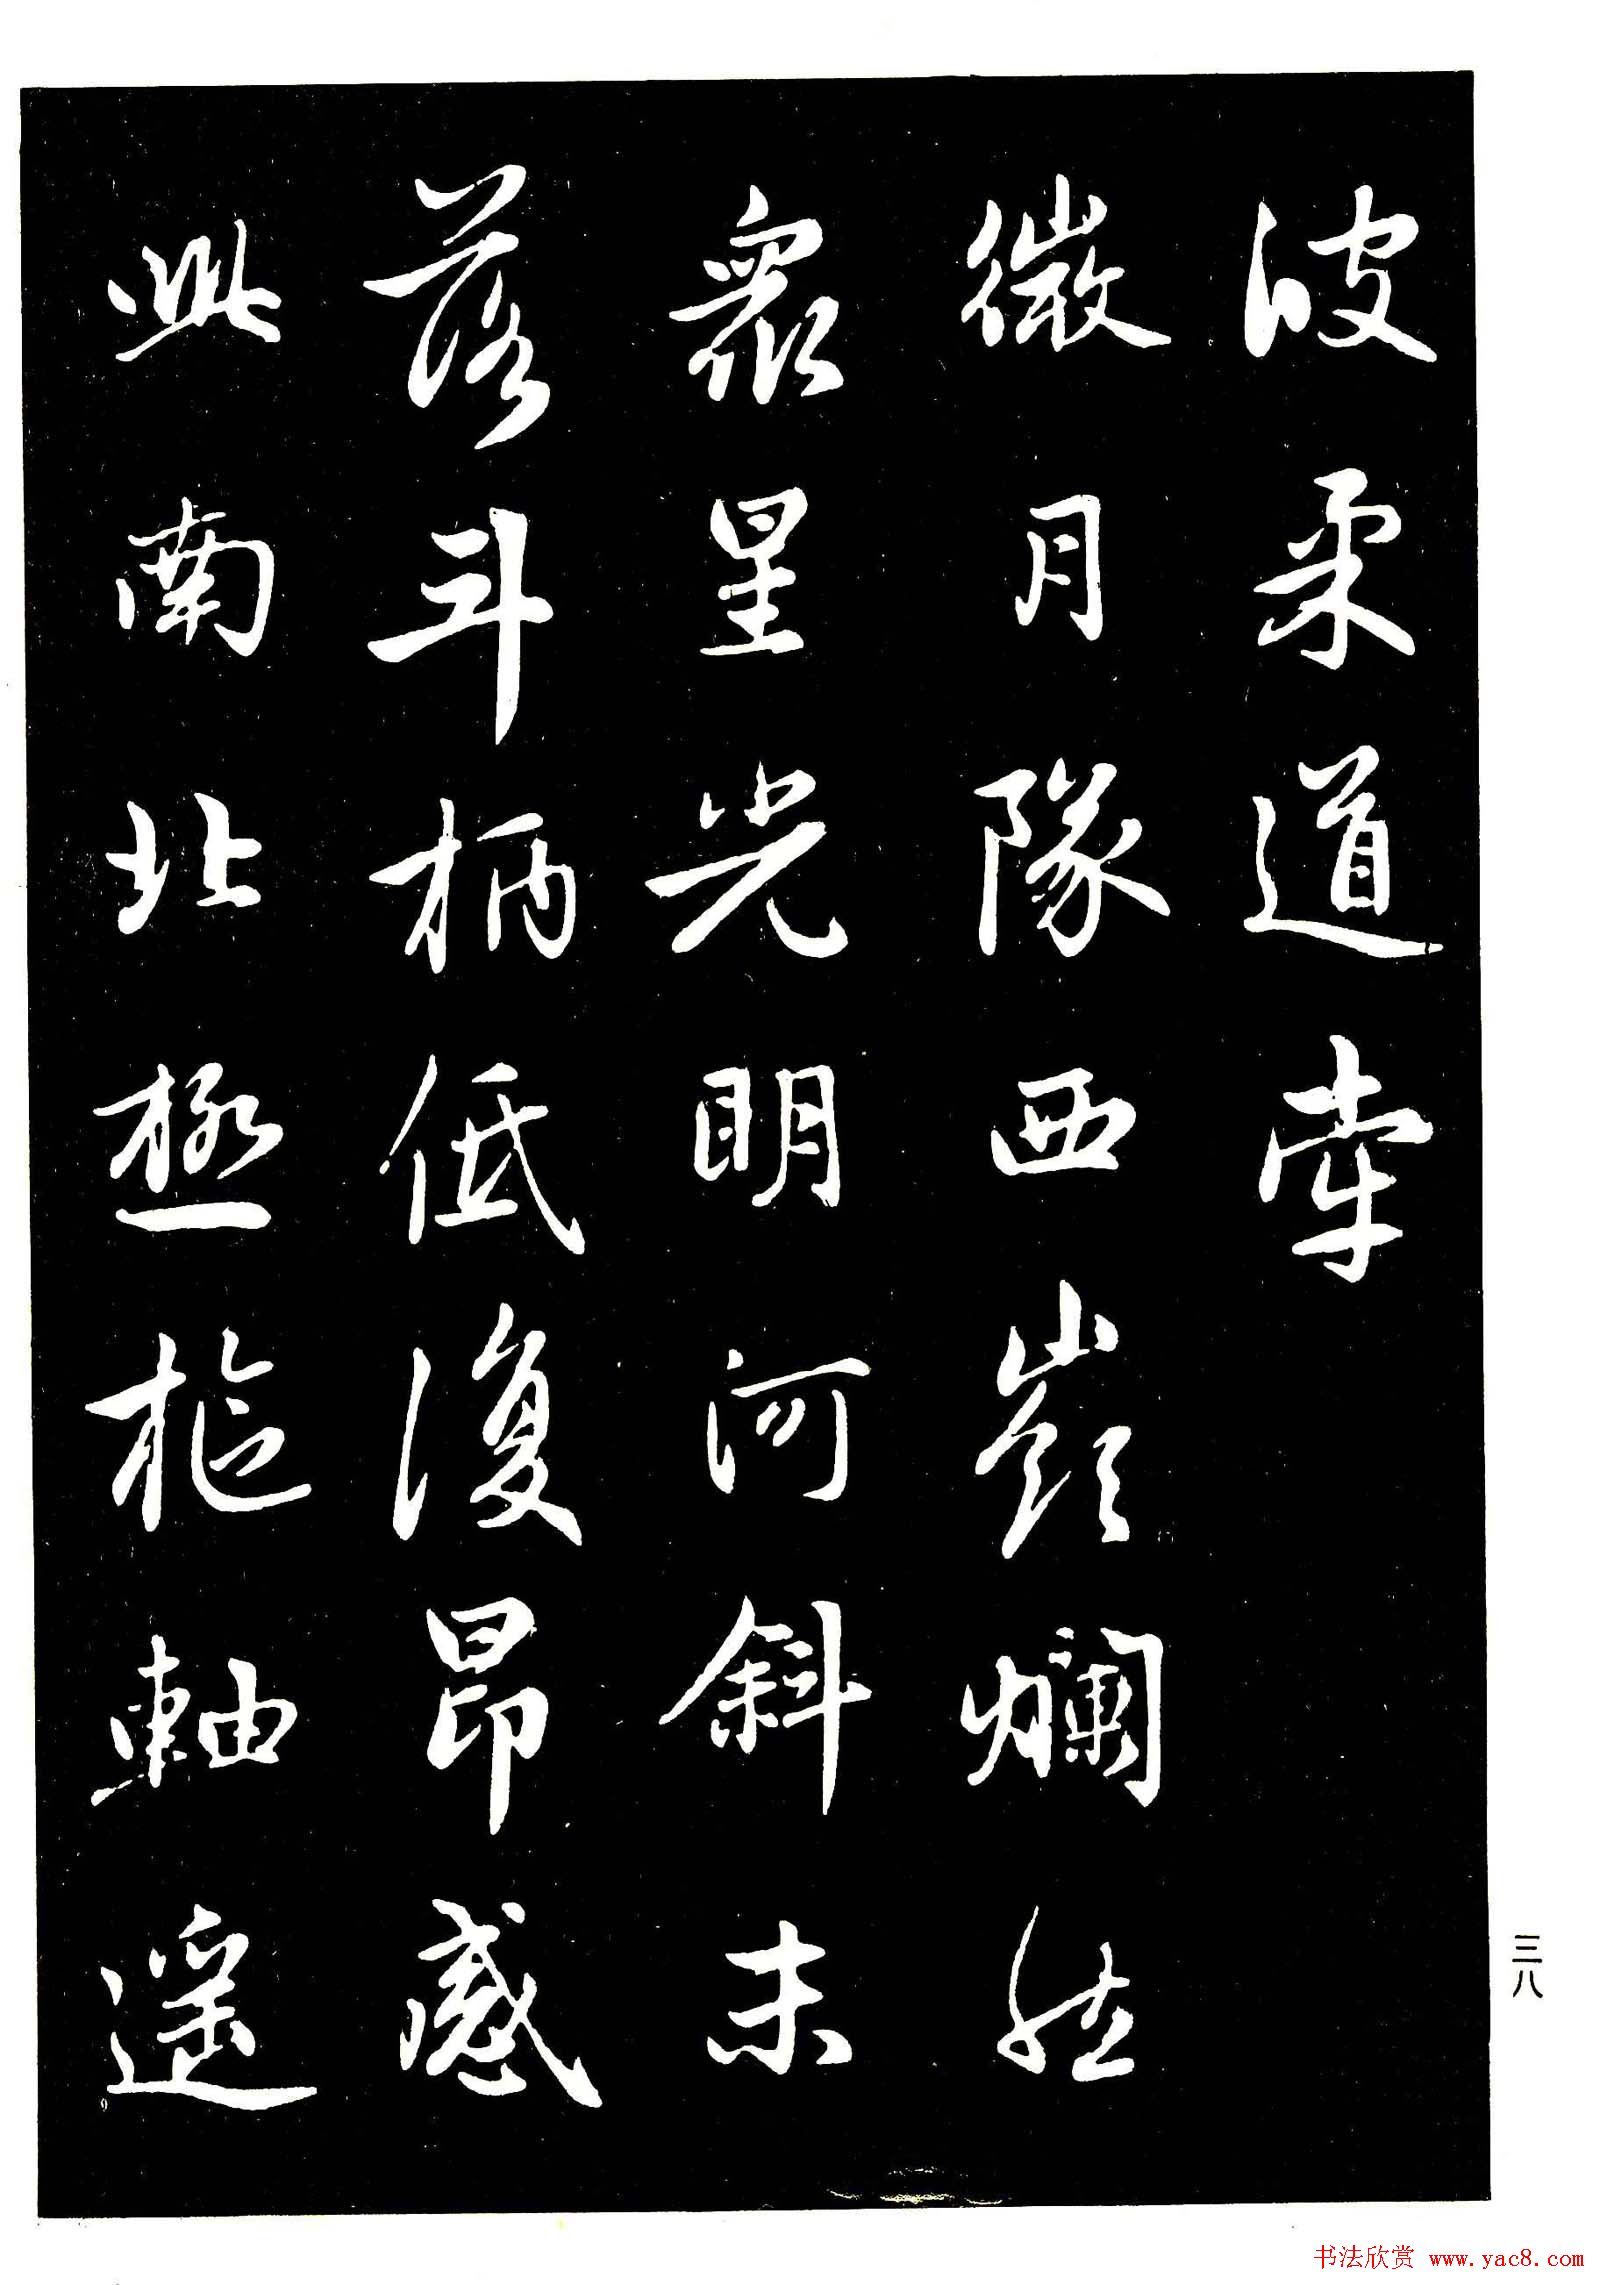 波柔道牽
微月隊西嶺爛然
衆星光明河斜未
落斗柄低復昂感
此南北極樞軸遥
三八
书法欣赏 www.yac8.com